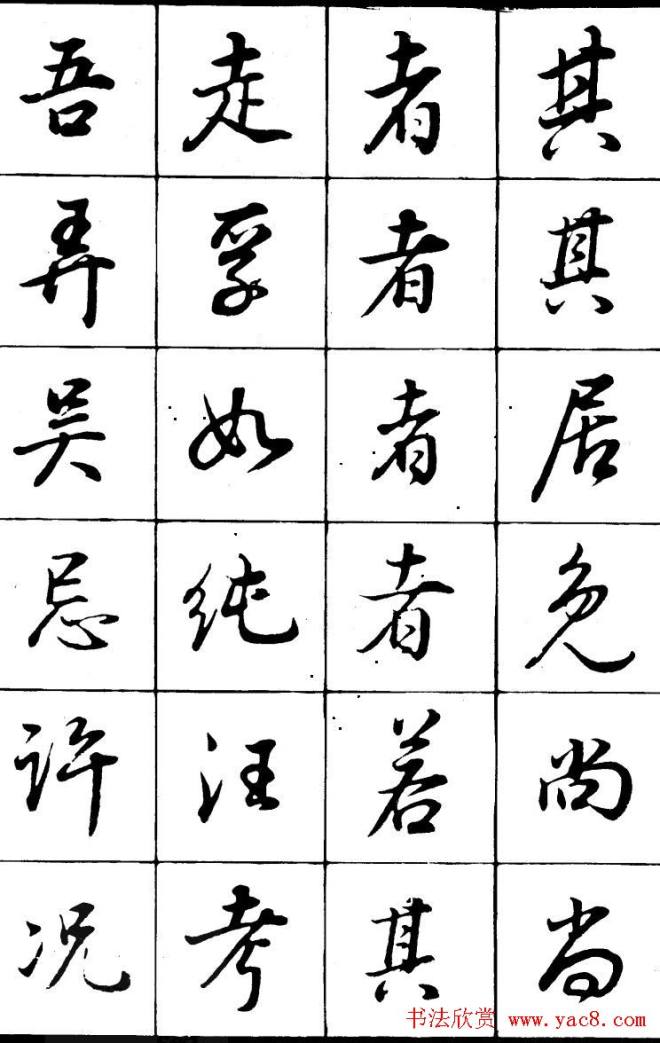 吾弄吴忌许况
走孚如纯汪考
者者者者若其
其其居免尚尚
书法欣赏 www.yac8.com